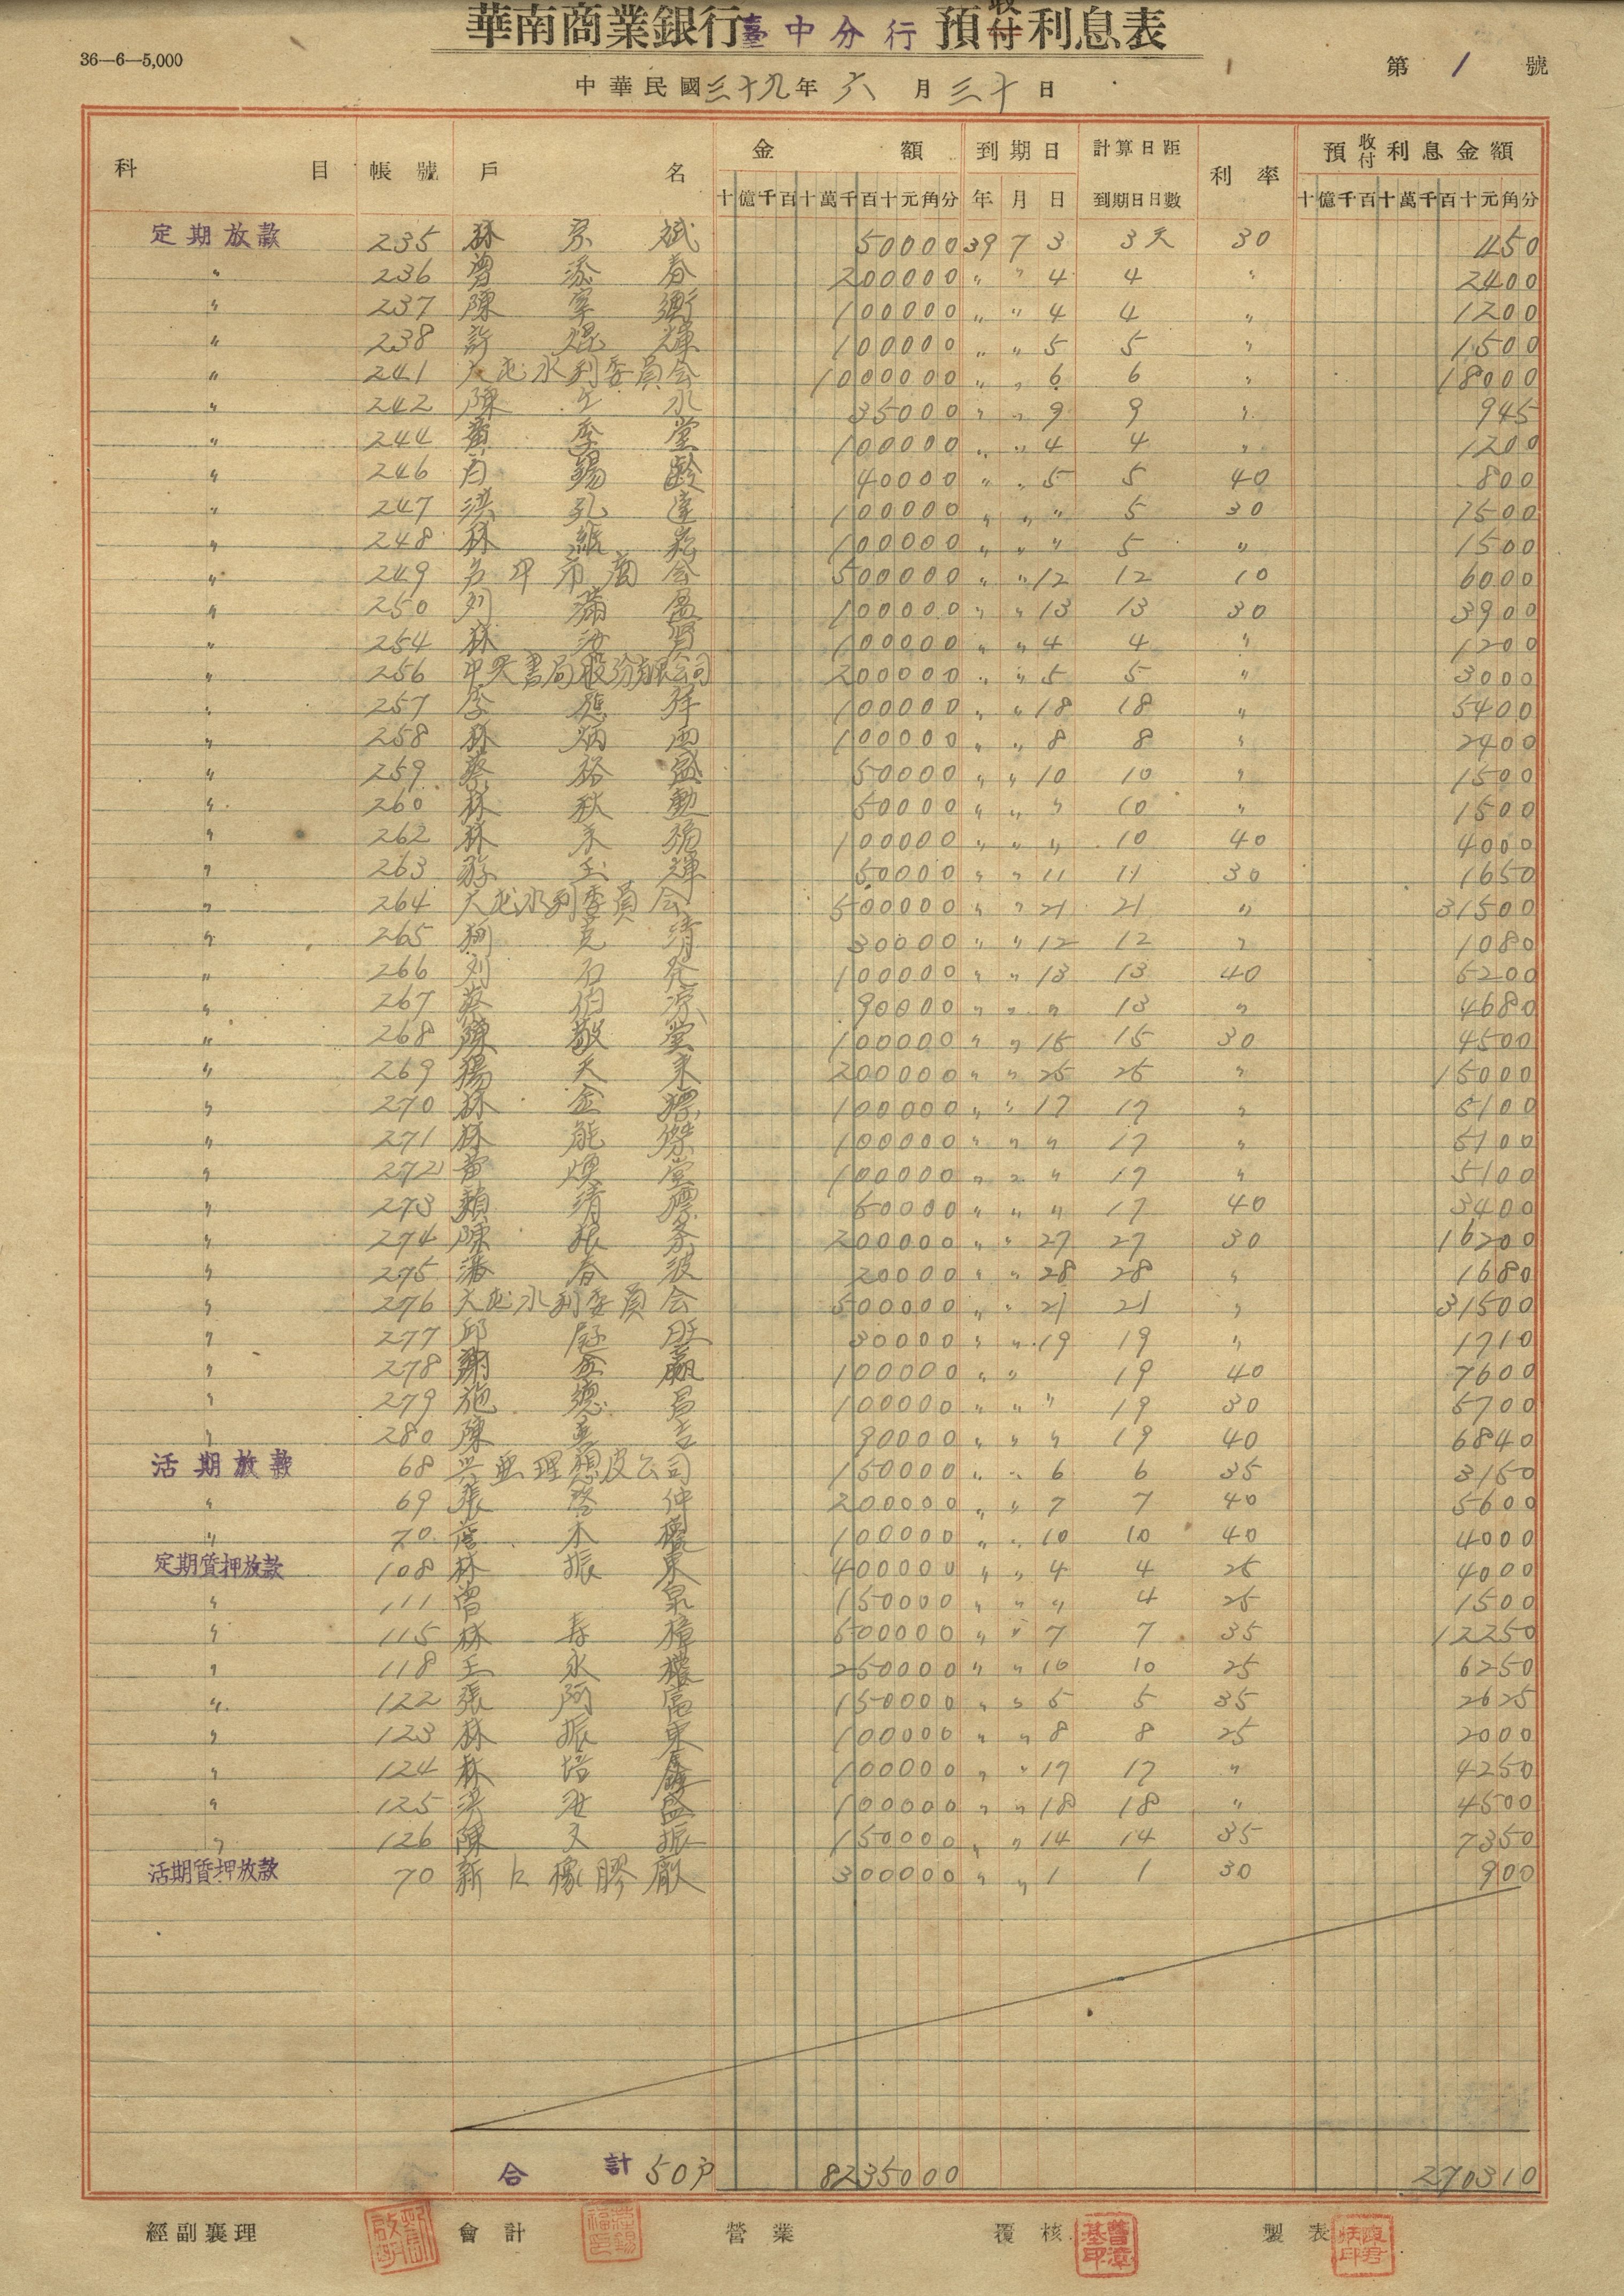 華南商業銀行臺中分行 預收付利息表
36—6—5,000
第 1 號
中華民國三十九年六月三十日
科目 帳號 戶名 金額 到期日 計算日距到期日日數 利率 預收付利息金額
十億千百十萬千百十元角分 年 月 日 十億千百十萬千百十元角分
定期放款 235 林 斌 50000 39 7 3 3天 30 450
〃 236 曾添春 200000 〃 〃 4 4 〃 2400
〃 237 陳宰衡 100000 〃 〃 4 4 〃 1200
〃 238 許焜輝 100000 〃 〃 5 5 〃 1500
〃 241 大屯水利委員会 1000000 〃 〃 6 6 〃 18000
〃 242 陳 永 35000 〃 〃 9 9 〃 945
〃 244 黃 堂 100000 〃 〃 4 4 〃 1200
〃 246 白錫齡 40000 〃 〃 5 5 40 800
〃 247 洪孔達 100000 〃 〃 〃 5 30 1500
〃 248 林 100000 〃 〃 〃 5 〃 1500
〃 249 台中市商会 500000 〃 〃 12 12 10 6000
〃 250 列滿盈 100000 〃 〃 13 13 30 3900
〃 254 林 100000 〃 〃 4 4 〃 1200
〃 256 中央書局股份有限公司 200000 〃 〃 5 5 〃 3000
〃 257 李應祥 100000 〃 〃 18 18 〃 5400
〃 258 林炳 100000 〃 〃 8 8 〃 2400
〃 259 蔡裕盛 50000 〃 〃 10 10 〃 1500
〃 260 林秋勳 50000 〃 〃 〃 10 〃 1500
〃 262 林 100000 〃 〃 〃 10 40 4000
〃 263 游玉輝 50000 〃 〃 11 11 30 1650
〃 264 大屯水利委員会 500000 〃 〃 21 21 〃 31500
〃 265 清 30000 〃 〃 12 12 〃 1080
〃 266 列石発 100000 〃 〃 13 13 40 5200
〃 267 蔡伯 90000 〃 〃 〃 13 〃 4680
〃 268 陳敬堂 100000 〃 〃 15 15 30 4500
〃 269 楊天来 200000 〃 〃 25 25 〃 15000
〃 270 林金標 100000 〃 〃 17 17 〃 5100
〃 271 林能傑 100000 〃 〃 〃 17 〃 5100
〃 272 黃煥堂 100000 〃 〃 〃 17 〃 5100
〃 273 賴清標 50000 〃 〃 〃 17 40 3400
〃 274 陳根 200000 〃 〃 27 27 30 16200
〃 275 潘春波 20000 〃 〃 28 28 〃 1680
〃 276 大屯水利委員会 500000 〃 〃 21 21 〃 31500
〃 277 邱 30000 〃 〃 19 19 〃 1710
〃 278 謝 100000 〃 〃 19 40 7600
〃 279 施德昌 100000 〃 〃 〃 19 30 5700
〃 280 陳 吉 90000 〃 〃 〃 19 40 6840
活期放款 68 興亜理想皮公司 150000 〃 〃 6 6 35 3150
〃 69 張啓仲 200000 〃 〃 7 7 40 5600
〃 70 詹木權 100000 〃 〃 10 10 40 4000
定期質押放款 108 林振東 400000 〃 〃 4 4 25 4000
〃 111 曾泉 150000 〃 〃 〃 4 25 1500
〃 115 林壽 500000 〃 〃 7 7 35 12250
〃 118 王永權 250000 〃 〃 10 10 25 6250
〃 122 張阿富 150000 〃 〃 5 5 35 2625
〃 123 林振東 100000 〃 〃 8 8 25 2000
〃 124 林培 100000 〃 〃 17 17 〃 4250
〃 125 洪 盛 100000 〃 〃 18 18 〃 4500
〃 126 陳天振 150000 〃 〃 14 14 35 7350
活期質押放款 70 新上橡膠廠 300000 〃 〃 1 1 30 900
合計 50戸 8235000 270310
經副襄理 會計 營業 覆核 製表